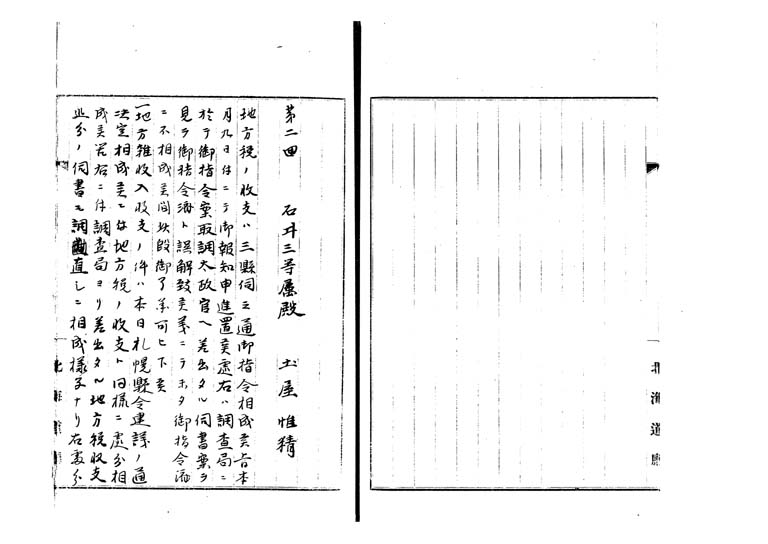 北海道廳
第二回　石井三等属殿　土屋惟精
地方税ノ收支ハ三縣伺之通御指令相成候旨本
月九日付ニテ御報知申進置候處右ハ調査局ニ
於テ御指令案取調太政官ヘ差出タル伺書案ヲ
見テ御指令済ト誤解致候義ニテホタ御指令済
ニ不相成候間此段御了承可被下候
一地方雑收入收支ノ件ハ本日札幌縣令建議ノ通
決定相成候ニ付地方税ノ收支ト同様ニ處分相
成候筈右ニ付調査局ヨリ差出タル地方税收支
処分ノ伺書モ調直シニ相成様子ナリ右處分
北海道廳